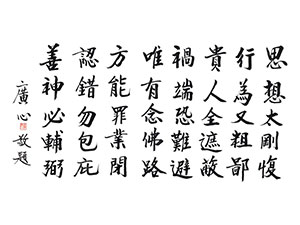 思想太剛愎
行為又粗鄙
貴人全遮蔽
禍端恐難避
唯有念佛路
方能罪業閉
認錯勿包庇
善神必輔弼
廣心敬題